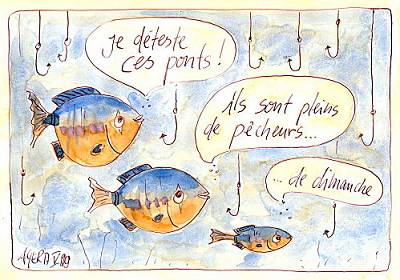 je déteste
ces ponts !
Ils sont pleins
de pêcheurs...
... de dimanche